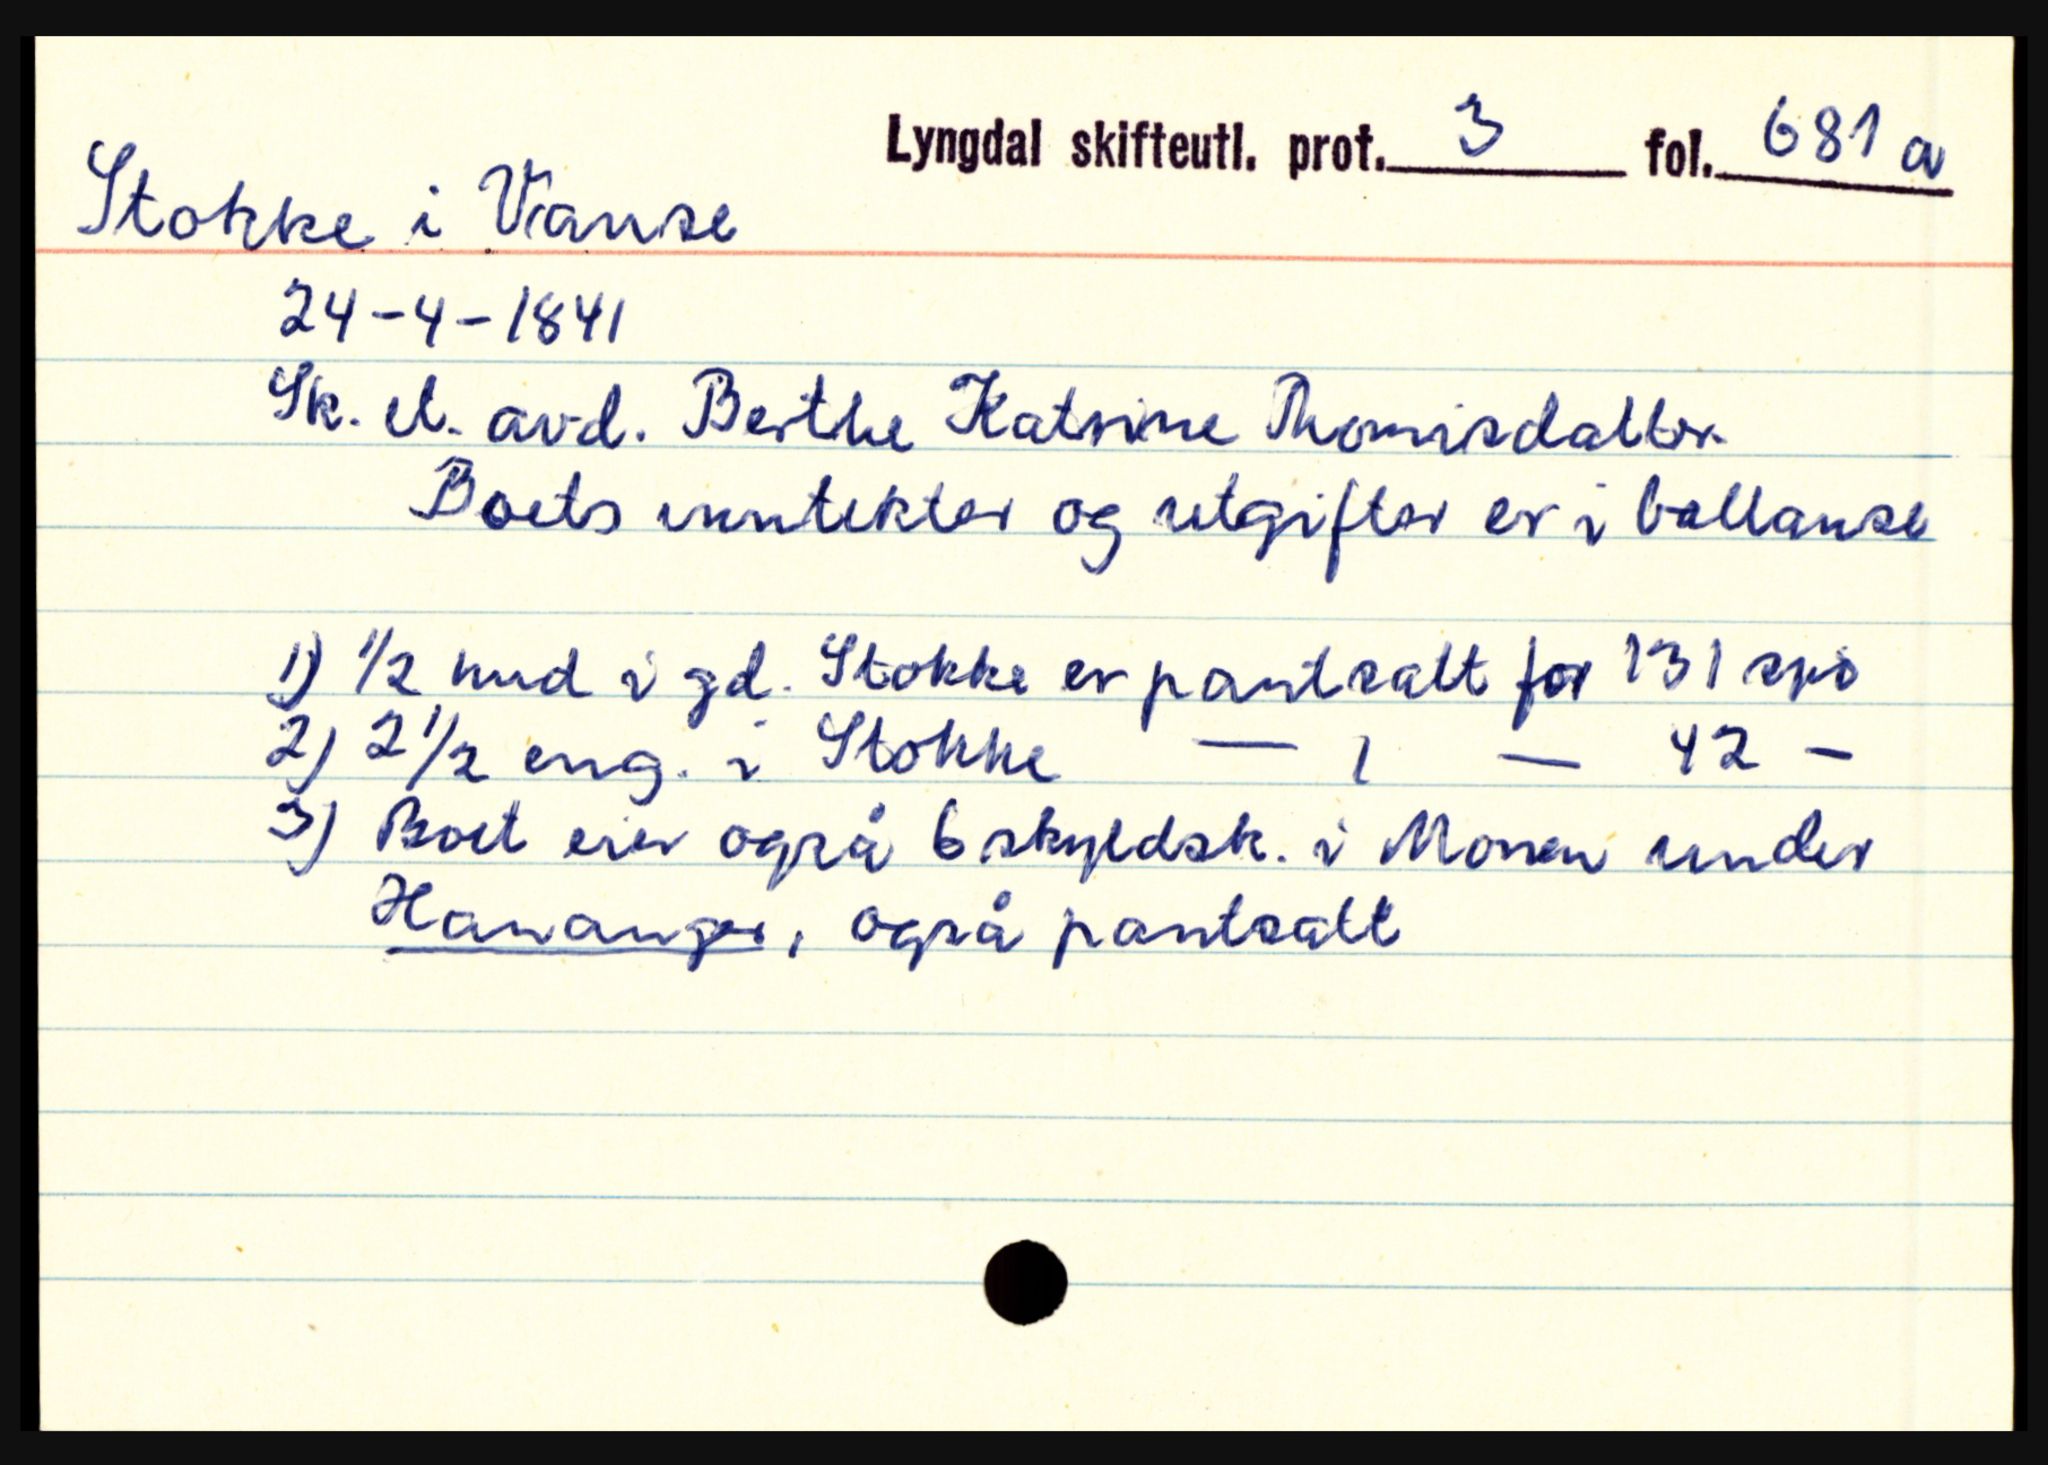 Lyngdal skifteutl. prot. 3 fol. 681 a
Stokke i Vanse
24-4-1841
Sk. et. avd. Berthe Katrine Thomisdatter.
Boets inntekter og utgifter er i ballanse
1) 1/2 hud i gd. Stokke er pantsatt for 131 spd
2) 2 1/2 eng. i Stokke — 1 — 42 —
3) Boet eier også 6 skyldsk. i Monen under
Hananger, også pantsatt